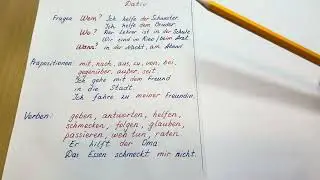 Dativ
Fragen Wem? Ich helfe der Schwester.
Ich helfe dem Bruder.
Wo? Der Lehrer ist in der Schule
Wir sind im Kino / beim Arzt
Wann? in der Nacht, am Abend
Präpositionen: mit, nach, aus, zu, von, bei,
gegenüber, außer, seit
Ich gehe mit dem Freund
in die Stadt.
Ich fahre zu meiner Freundin.
Verben: geben, antworten, helfen,
schmecken, folgen, glauben,
passieren, weh tun, raten
Er hilft der Oma
Das Essen schmeckt mir nicht.